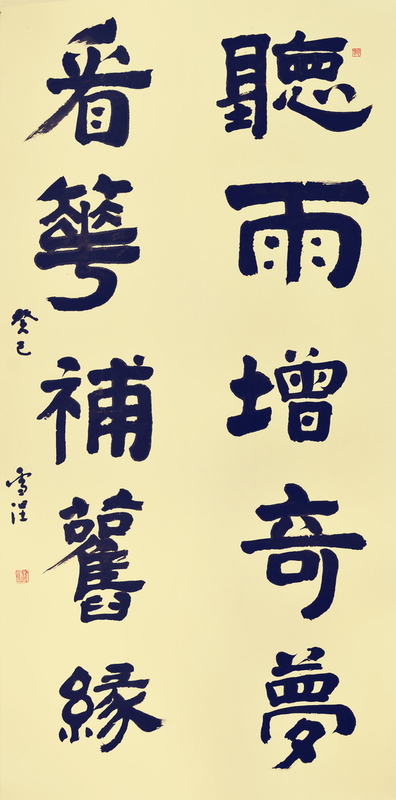 聽雨增奇夢
看華補舊緣
癸巳
雪涅